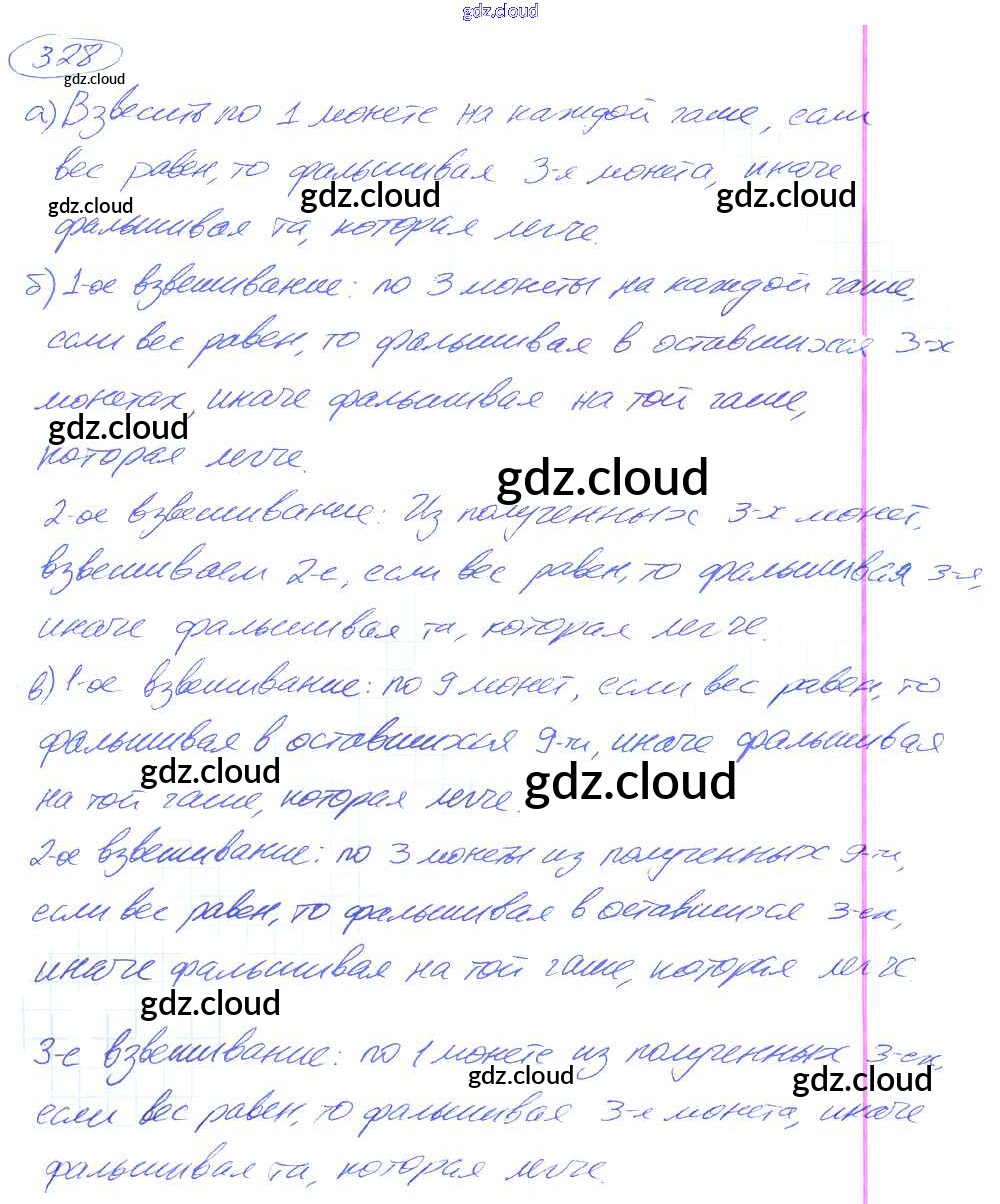 gdz.cloud
328
gdz.cloud
а) Взвесить по 1 монете на каждой чаше, если
вес равен, то фальшивая 3-я монета, иначе
gdz.cloud gdz.cloud gdz.cloud
фальшивая та, которая легче.
б) 1-ое взвешивание: по 3 монеты на каждой чаше,
если вес равен, то фальшивая в оставшихся 3-х
монетах, иначе фальшивая на той чаше,
gdz.cloud
которая легче.
gdz.cloud
2-ое взвешивание: Из полученных 3-х монет,
взвешиваем 2-е, если вес равен, то фальшивая 3-я,
иначе фальшивая та, которая легче.
в) 1-ое взвешивание: по 9 монет, если вес равен, то
фальшивая в оставшихся 9-ти, иначе фальшивая
gdz.cloud gdz.cloud
на той чаше, которая легче.
2-ое взвешивание: по 3 монеты из полученных 9-ти,
если вес равен, то фальшивая в оставшихся 3-ех,
иначе фальшивая на той чаше, которая легче.
gdz.cloud
3-е взвешивание: по 1 монете из полученных 3-ех,
gdz.cloud gdz.cloud
если вес равен, то фальшивая 3-я монета, иначе
фальшивая та, которая легче.